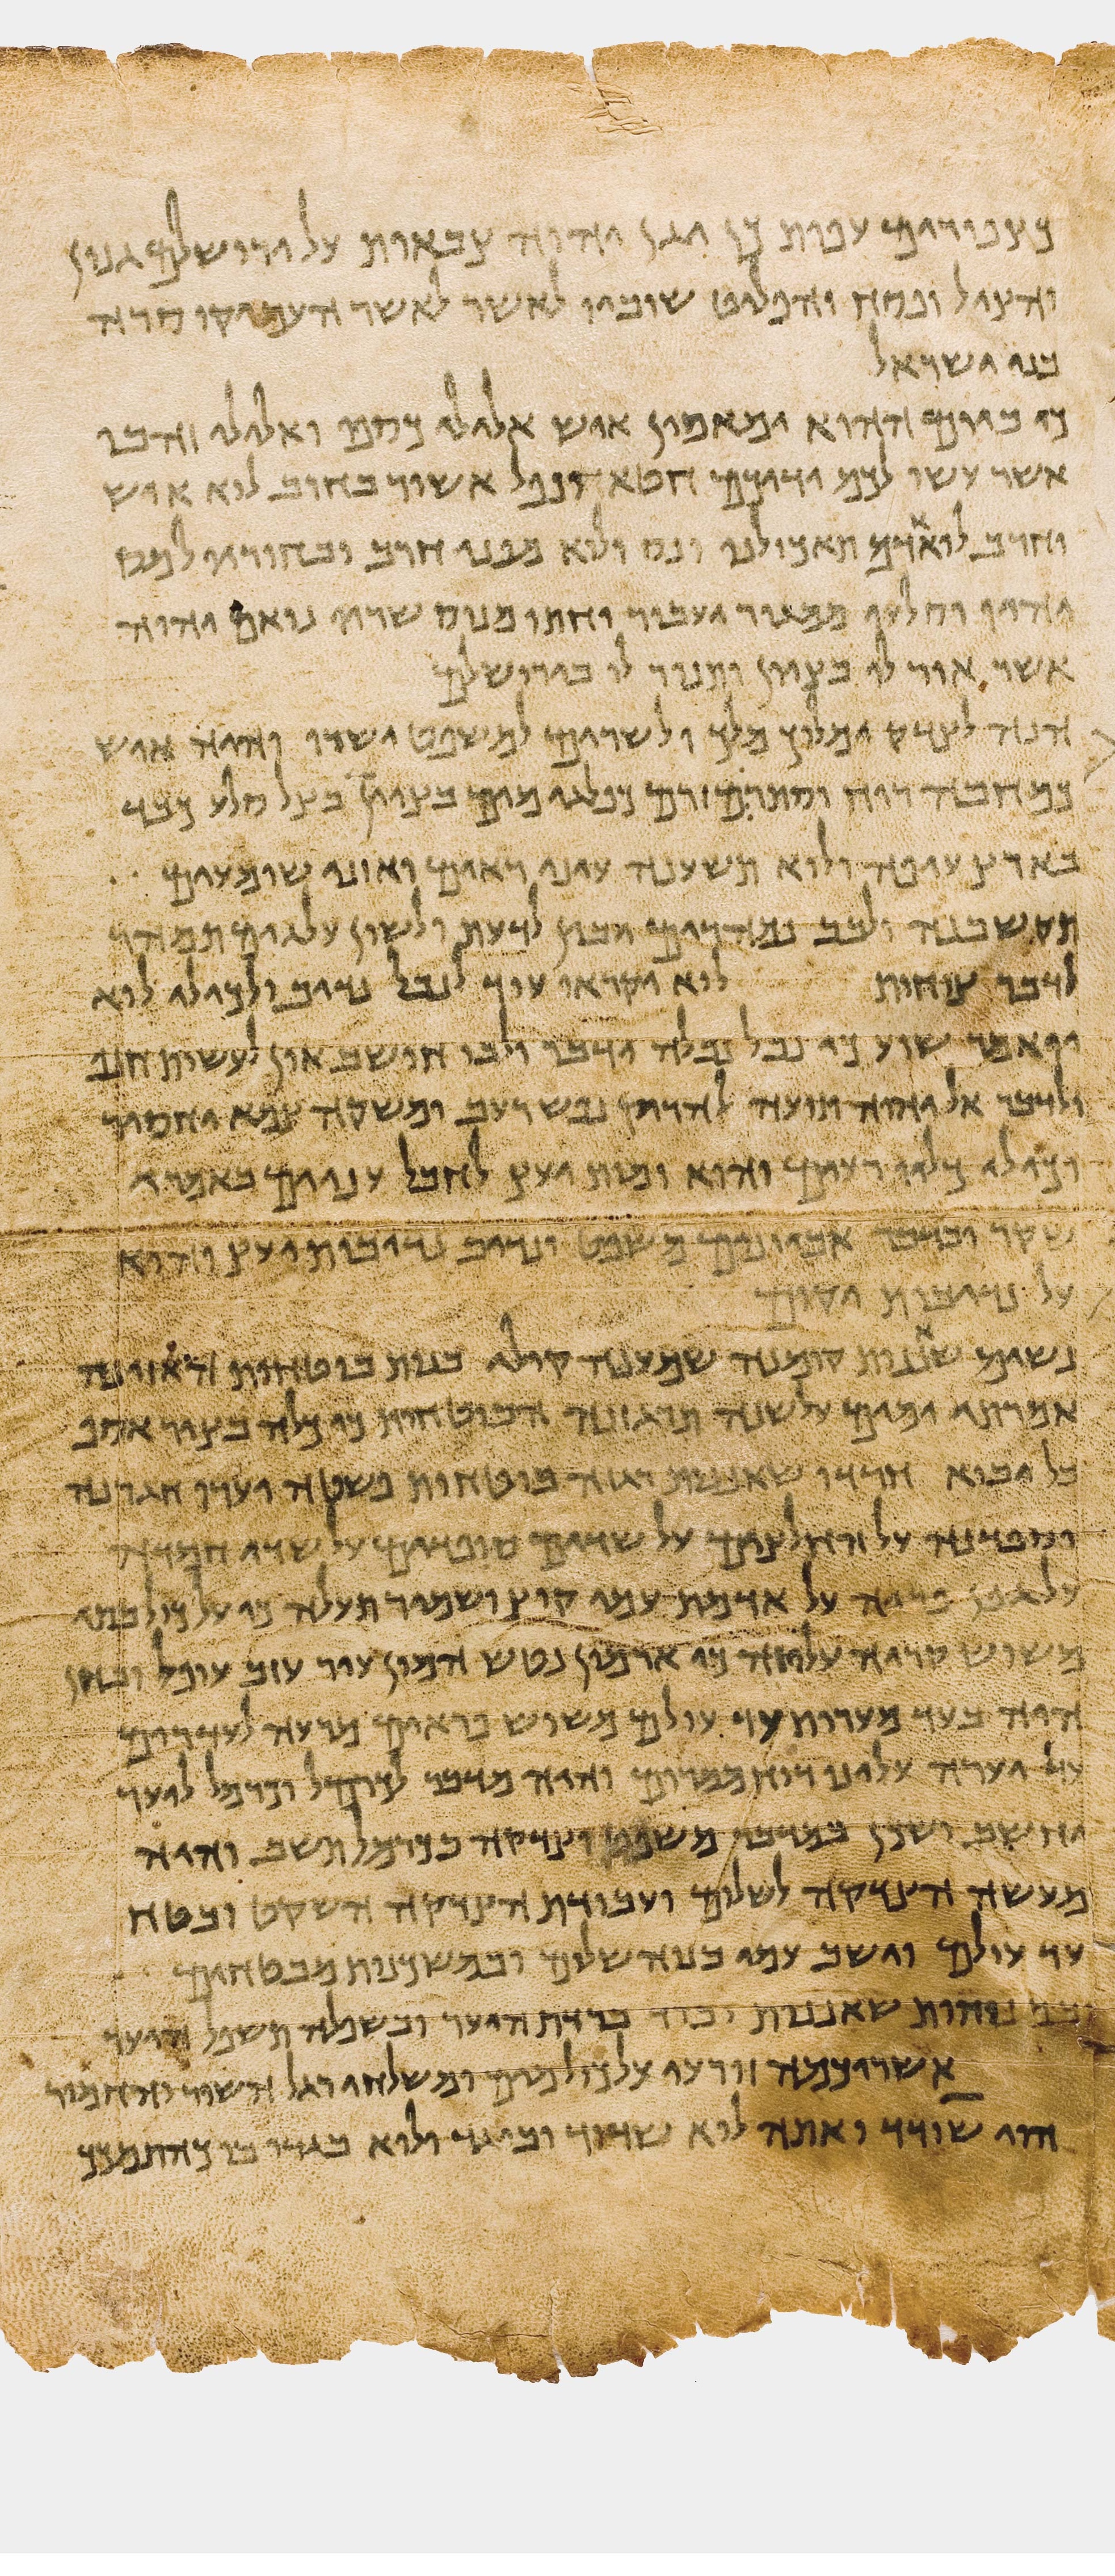 כצפורים עפות כן יגן יהוה צבאות על ירושלם גנון
והציל ופסח והפליט שובו לאשר לאשר העמיקו סרה
בני ישראל
כי ביום ההוא ימאסון איש אלילי כספו ואלילי זהבו
אשר עשו לכם ידיכם חטא ונפל אשור בחרב לוא איש
וחרב לוא אדם תאכולנו ונס ולוא מפני חרב ובחוריו למס
יהיו וסלעו ממגור יעבור וחתו מנוס שריו נואם יהוה
אשר אור לו בציון ותנור לו בירושלם
הנה לצדק ימלוך מלך ולשרים למשפט ישרו והיה איש
כמחבה רוח וסתרם זרם כפלגי מים בציון כצל סלע כבד
בארץ עיפה ולוא תשענה עיני ראים ואוזני שומעים
תקשבנה ולבב נמהרים יבין לדעת ולשון עלגים תמהר
לדבר צוחות לוא יקראו עוד לנבל נדיב ולכילי לוא
יואמר שוע כי נבל נבלה ידבר ולבו חושב און לעשות חנף
ולדבר אל יהוה תועה להריק נפש רעב ומשקה צמא יחסיר
וכילי כליו רעים והוא זמות יעץ לחבל ענוים באמרי
שקר ובדבר אביונים משפט ונדיב נדיבות יעץ והוא
על נדיבות יקום
נשים שאננות קומנה שמענה קולי בנות בוטחות האזינה
אמרתי ימים על שנה תרגזנה הבוטחות כי כלה בציר אסף
בל יבוא חרדו שאננות רגזה בוטחות פשטה וערו חגרנה
וספדנה על החלצים על שדים סופדים על שדי חמדה
על גפן פריה על אדמת עמי קוץ ושמיר תעלה כי על כול בתי
משוש קריה עליזה כי ארמון נטש המון עיר עזב עופל ובחן
היה בעד מערות עד עולם משוש פראים מרעה לעדרים
עד יערה עלינו רוח ממרום והיה מדבר לכרמל וכרמל ליער
יחשב ושכן במדבר משפט וצדקה בכרמל תשב והיה
מעשה הצדקה לשלום ועבודת הצדקה השקט ובטח
עד עולם וישב עמי בנוה שלום ובמשכנות מבטחים
ובמנוחות שאננות וברד ברדת היער ובשפלה תשפל היער
אשריכמה זורעי על כול מים ומשלחי רגל השור והחמור
הוי שודד ואתה לוא שדוד ובוגד ולוא בגדו בו כהתמכך